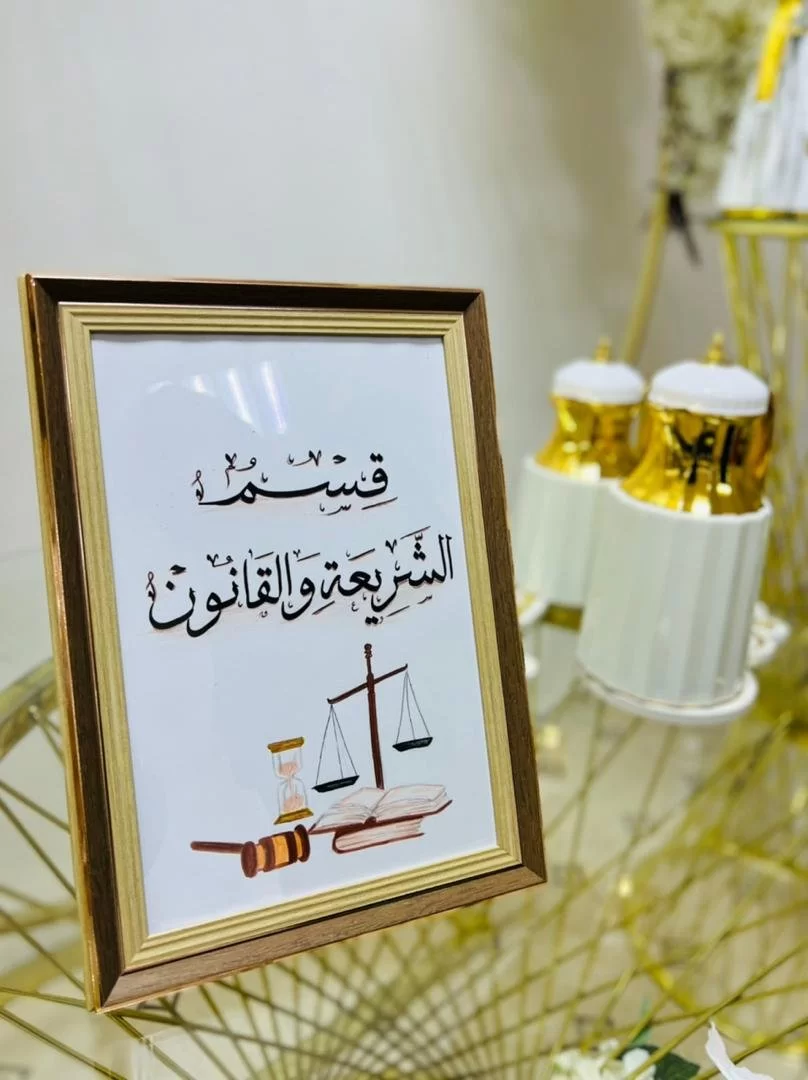 قِسْمُ
الشَّرِيعَةِ وَالقَانُونِ